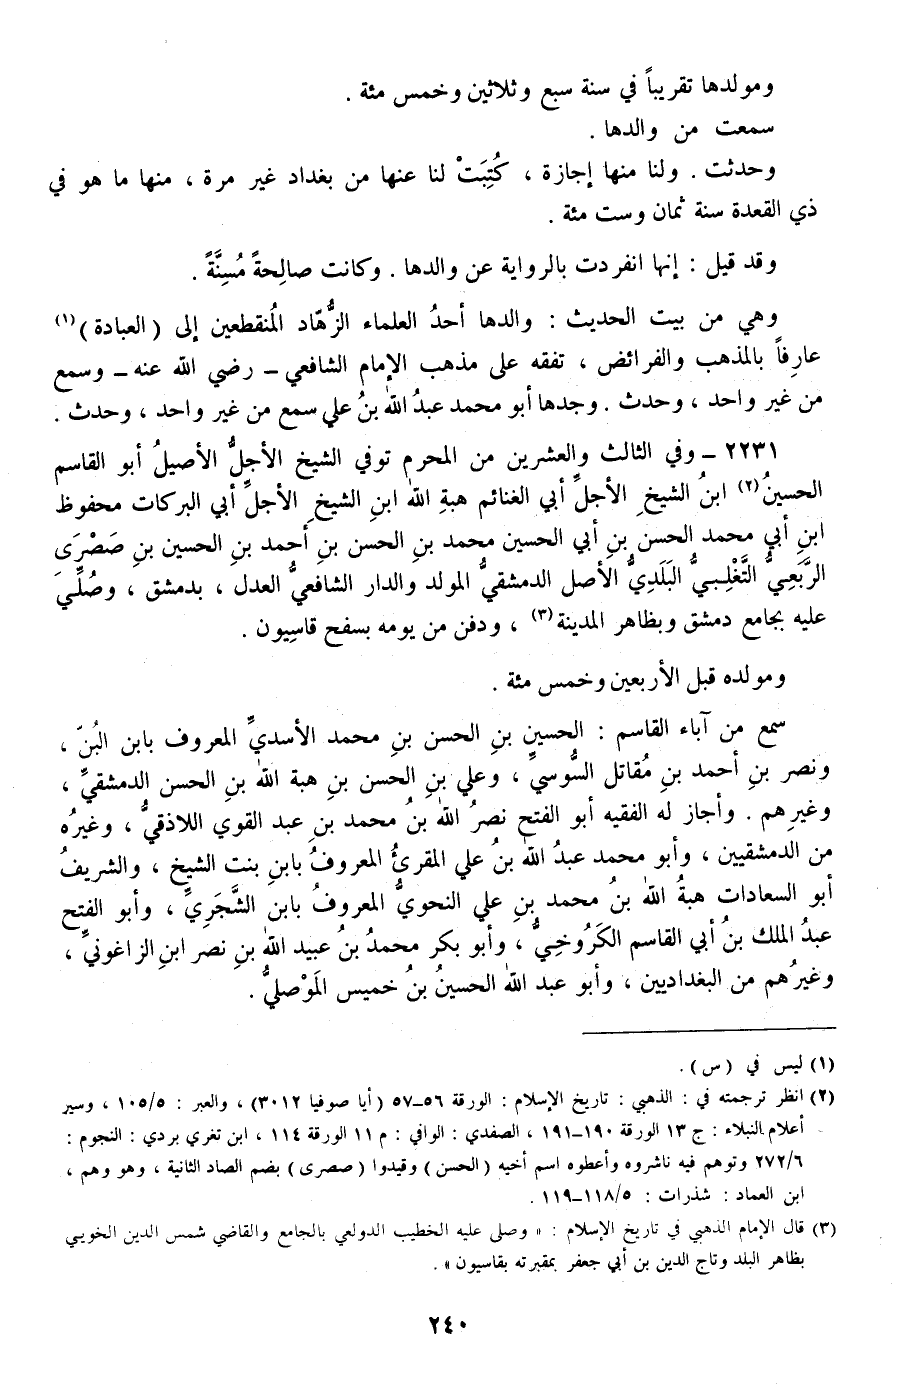 ومولدها تقريباً في سنة سبع وثلاثين وخمس مئة .
سمعت من والدها .
وحدثت . ولنا منها إجازة ، كُتِبَتْ لنا عنها من بغداد غير مرة ، منها ما هو في
ذي القعدة سنة ثمان وست مئة .
وقد قيل : إنها انفردت بالرواية عن والدها . وكانت صالِحةً مُسِنَّةً .
وهي من بيت الحديث : والدها أحدُ العلماء الزُّهّاد المُنقطعين إلى (العبادة)(١)
عارِفاً بالمذهب والفرائض ، تفقه على مذهب الإمام الشافعي – رضي الله عنه – وسمع
من غير واحد ، وحدث . وجدها أبو محمد عبدُ الله بنُ علي سمع من غير واحد ، وحدث .
٢٢٣١ – وفي الثالث والعشرين من المحرم توفي الشيخ الأجلُّ الأصيلُ أبو القاسم
الحسينُ(٢) ابنُ الشيخِ الأجلِّ أبي الغنائم هبةِ الله ابنِ الشيخِ الأجلِّ أبي البركات محفوظ
ابنِ أبي محمد الحسن بنِ أبي الحسين محمد بنِ الحسن بنِ أحمد بنِ الحسين بنِ صَصْرَى
الرَّبَعِيُّ التَّغْلِبيُّ البَلَدِيُّ الأصل الدمشقيُّ المولد والدار الشافعيُّ العدل ، بدمشق ، وصُلِّيَ
عليه بجامع دمشق وبظاهر المدينة(٣) ، ودفن من يومه بسفح قاسِيون .
ومولده قبل الأربعين وخمس مئة .
سمع من آباء القاسم : الحسينِ بنِ الحسن بنِ محمد الأسديِّ المعروف بابن البُنّ ،
ونصر بنِ أحمد بنِ مُقاتل السُّوسيِّ ، وعلي بنِ الحسن بنِ هبة الله بنِ الحسن الدمشقيِّ ،
وغيرِهم . وأجاز له الفقيه أبو الفتح نصرُ الله بنُ محمد بنِ عبد القوي اللاذقيُّ ، وغيرُه
من الدمشقيين ، وأبو محمد عبدُ الله بنُ علي المقرئُ المعروفُ بابنِ بنت الشيخ ، والشريفُ
أبو السعادات هبةُ الله بنُ محمد بنِ علي النحويُّ المعروفُ بابن الشَّجَرِيِّ ، وأبو الفتح
عبدُ الملك بنُ أبي القاسم الكَرُوخِيُّ ، وأبو بكر محمدُ بنُ عبيد الله بنِ نصر ابنِ الزاغونيِّ ،
وغيرُهم من البغداديين ، وأبو عبد الله الحسينُ بنُ خميس المَوْصليُّ .
(١) ليس في (س) .
(٢) انظر ترجمته في : الذهبي : تاريخ الإسلام : الورقة ٥٦–٥٧ (أيا صوفيا ٣٠١٢) ، والعبر : ١٠٥/٥ ، وسير
أعلام النبلاء : ج ١٣ الورقة ١٩٠–١٩١ ، الصفدي : الوافي : م ١١ الورقة ١١٤ ، ابن تغري بردي : النجوم :
٢٧٢/٦ وتوهم فيه ناشروه وأعطوه اسم أخيه (الحسن) وقيدوا (صصرى) بضم الصاد الثانية ، وهو وهم ،
ابن العماد : شذرات : ١١٨/٥–١١٩ .
(٣) قال الإمام الذهبي في تاريخ الإسلام : « وصلى عليه الخطيب الدولعي بالجامع والقاضي شمس الدين الخويي
بظاهر البلد وتاج الدين بن أبي جعفر بمقبرته بقاسيون » .
٢٤٠